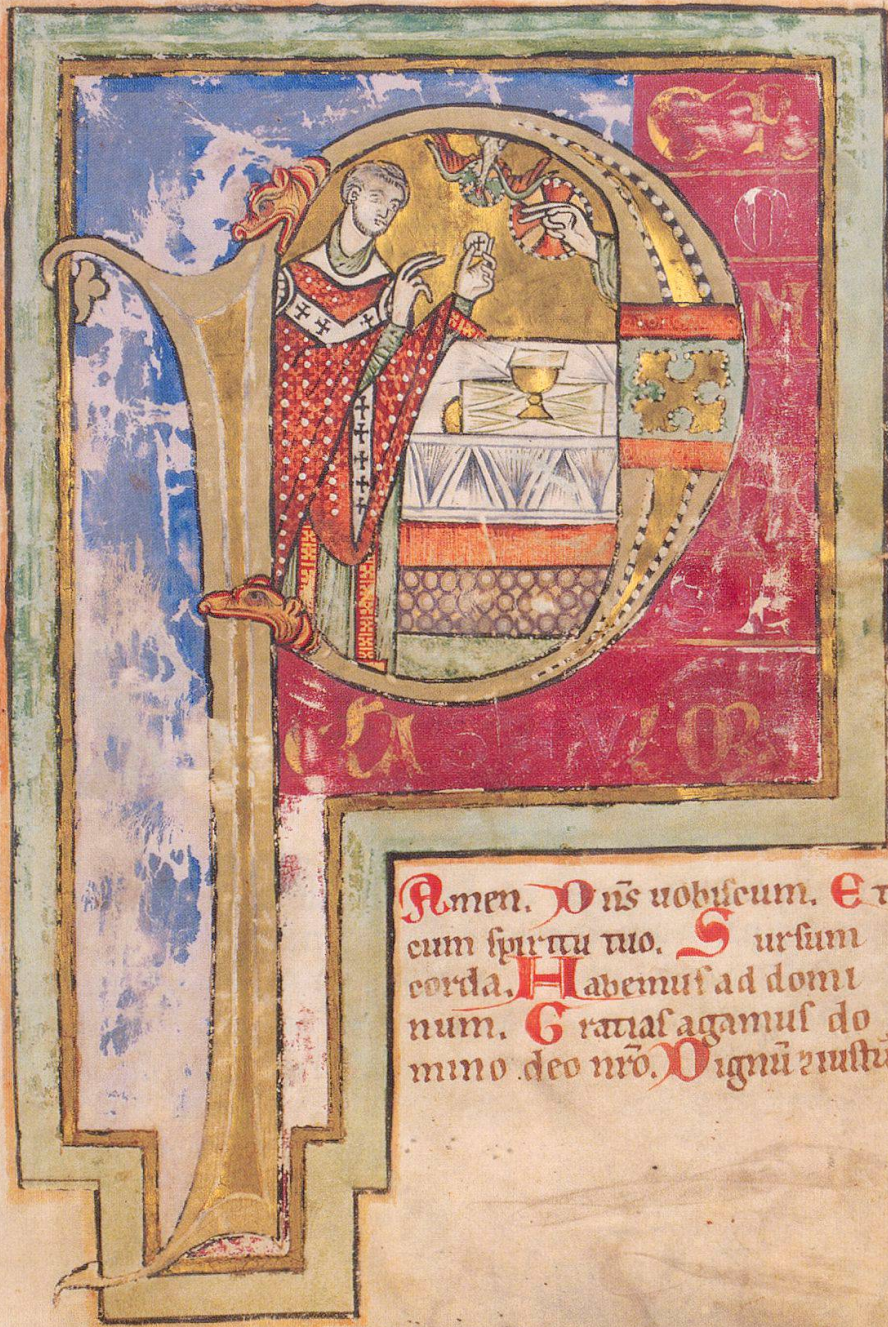 P
ER
O
M
Amen. Dn̄s uobiscum. Et
cum spiritu tuo. Sursum
corda. Habemus ad domi
num. Gratias agamus do
mino deo nr̄o. Dignū ⁊ iustū